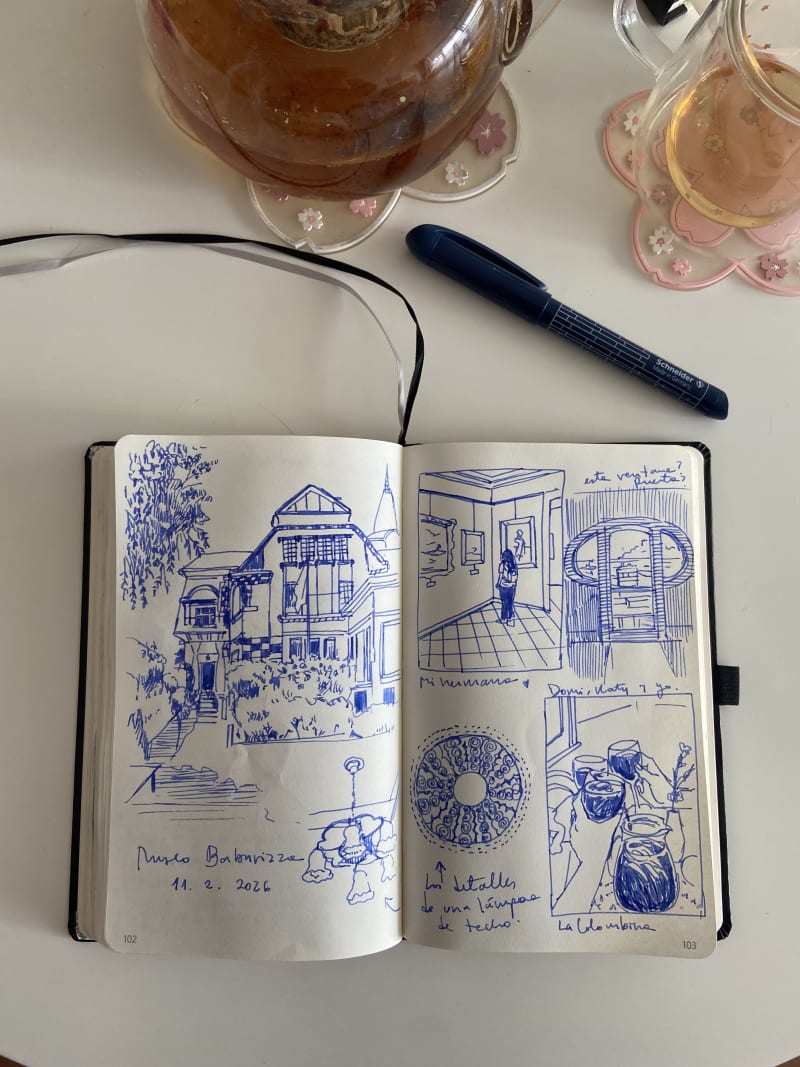 Schneider
Made in Germany
Museo Baburizza
11. 2. 2026
102
esta ventana?
puerta?
Mi hermana
Domi, Katy y yo.
Los detalles
de una lámpara
de techo.
La Colombina
103